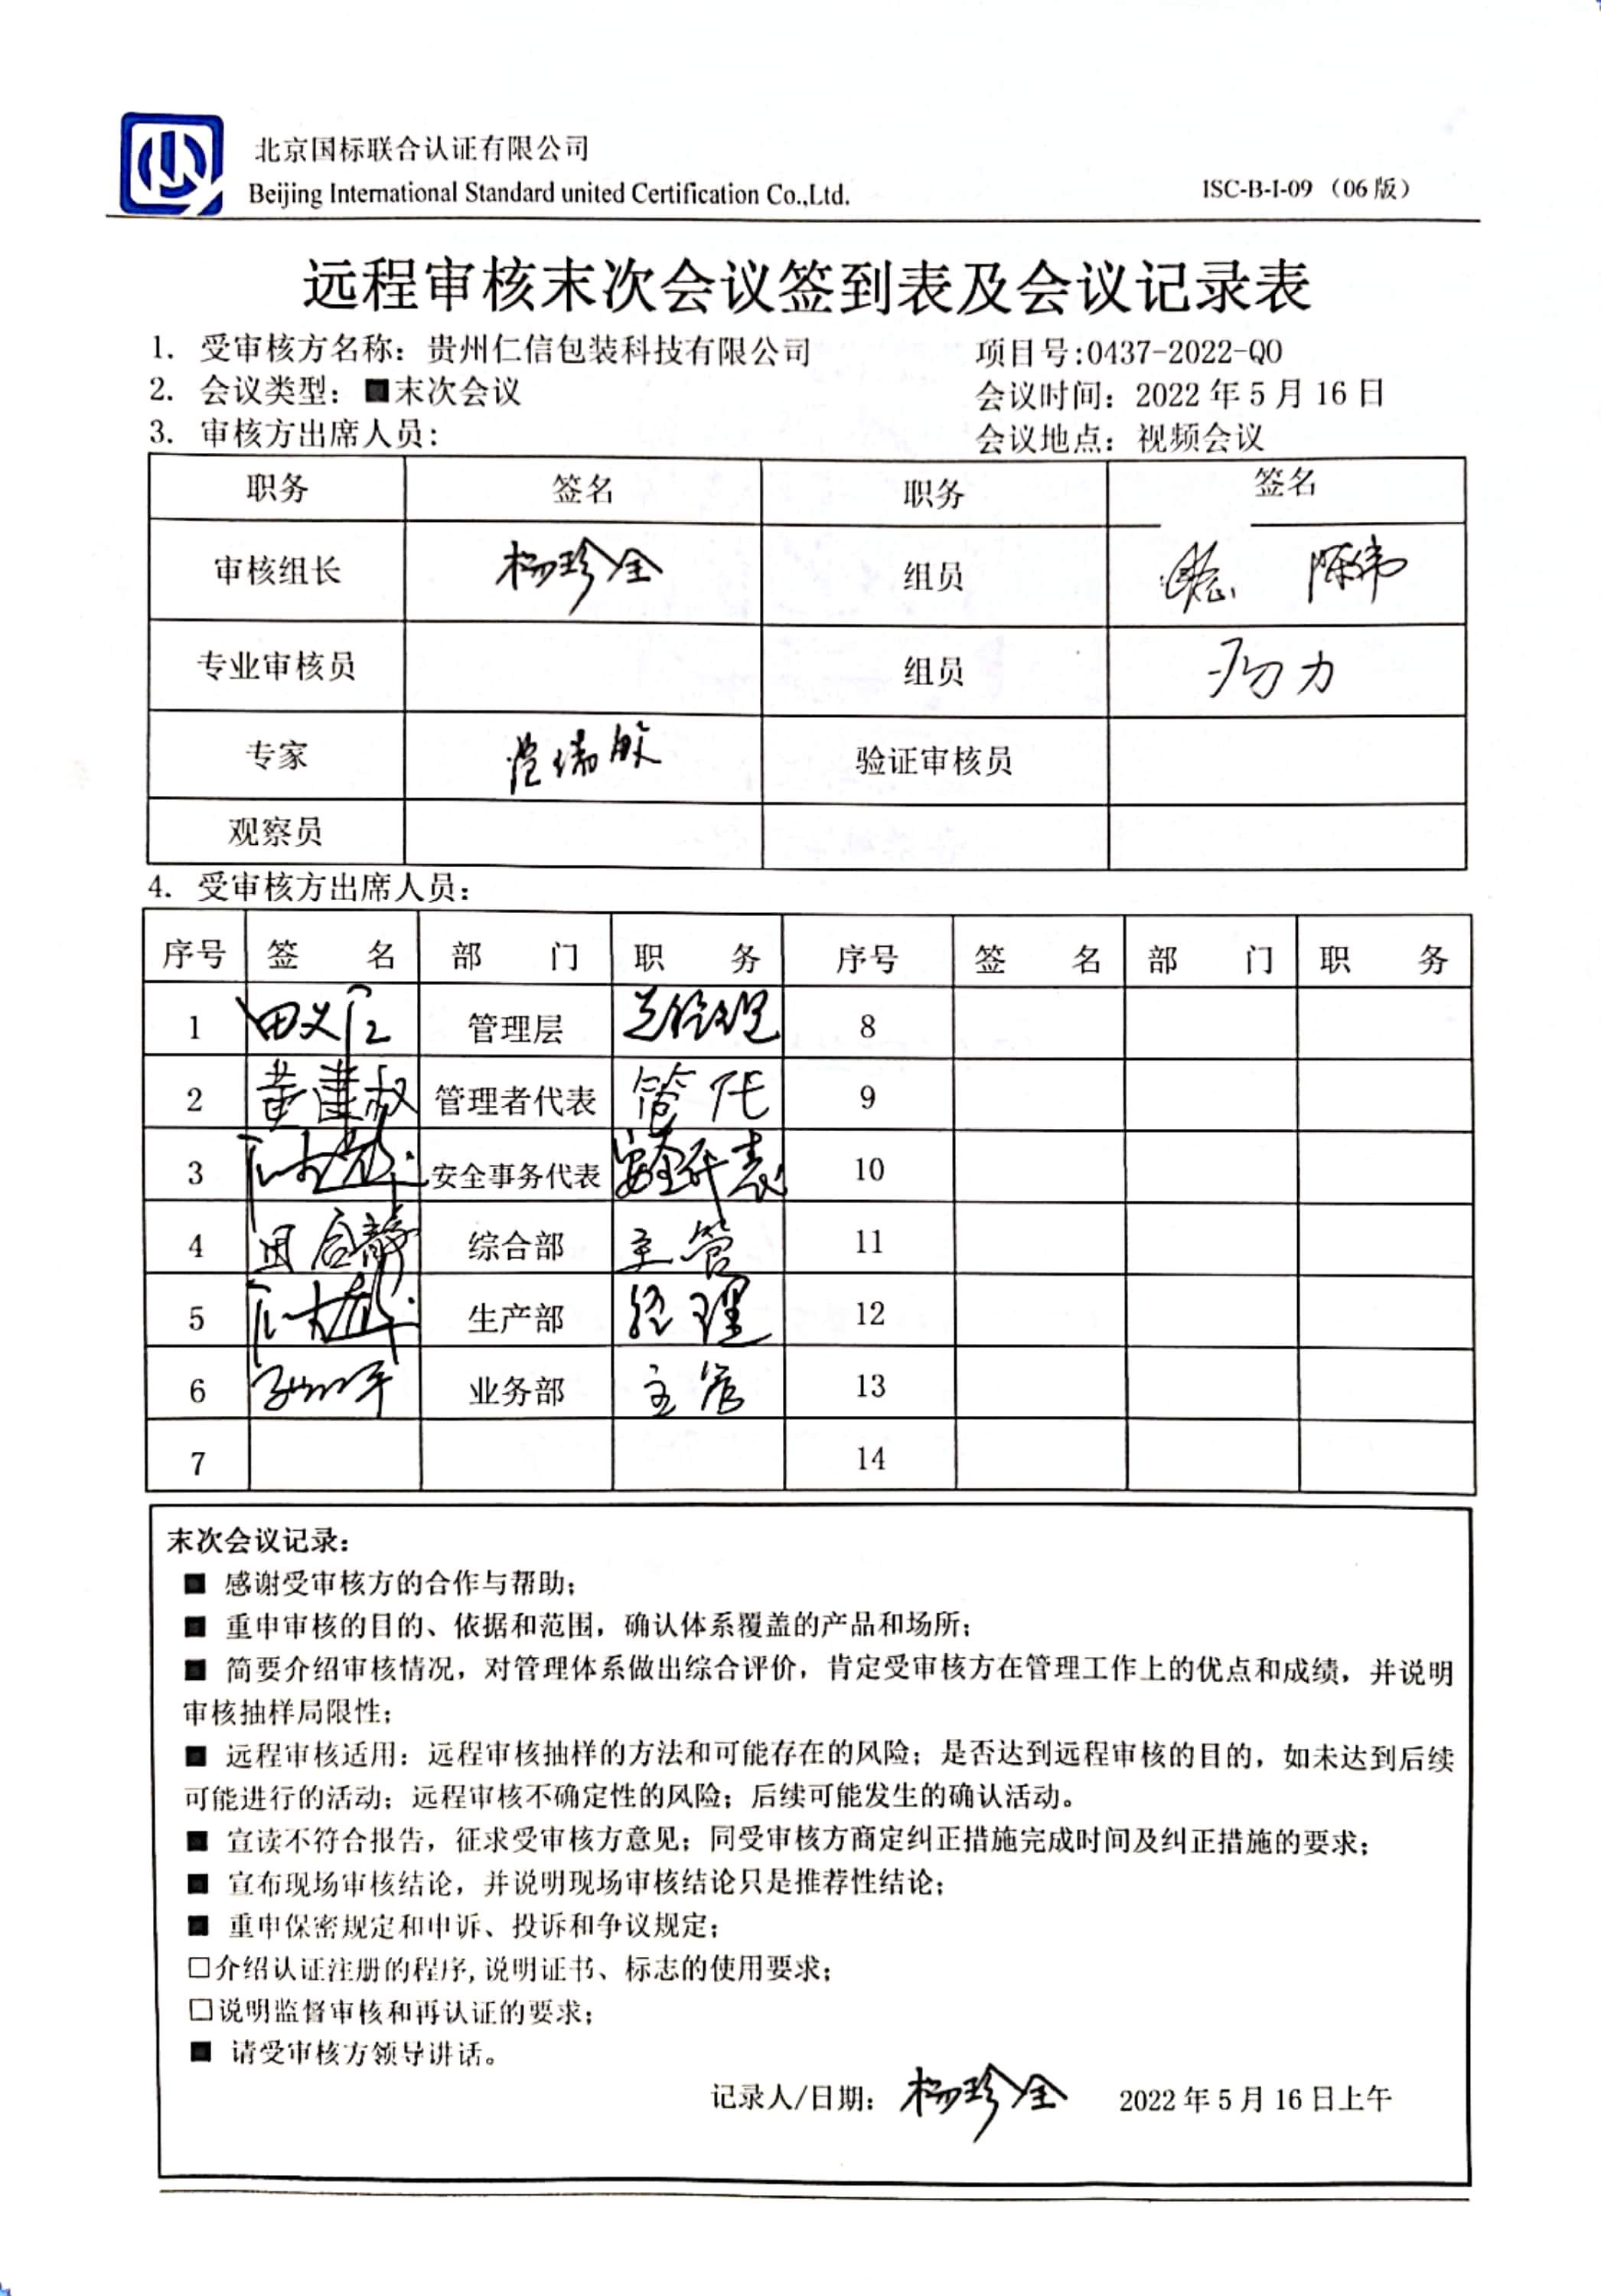 北京国标联合认证有限公司
Beijing International Standard united Certification Co.,Ltd.
ISC-B-I-09 （06 版）
远程审核末次会议签到表及会议记录表
1. 受审核方名称：贵州仁信包装科技有限公司 项目号:0437-2022-QO
2. 会议类型：■末次会议 会议时间：2022 年 5 月 16 日
3. 审核方出席人员： 会议地点：视频会议
职务 签名 职务 签名
审核组长 杨珍全 组员 陈伟
专业审核员 组员 力
专家 范瑞敏 验证审核员
观察员
4. 受审核方出席人员：
序号 签 名 部 门 职 务 序号 签 名 部 门 职 务
1 田义仁 管理层 总经理 8
2 黄 管理者代表 管代 9
3 安全事务代表 安全代表 10
4 田 静 综合部 主管 11
5 生产部 经理 12
6 平 业务部 主管 13
7 14
末次会议记录：
■ 感谢受审核方的合作与帮助；
■ 重申审核的目的、依据和范围，确认体系覆盖的产品和场所；
■ 简要介绍审核情况，对管理体系做出综合评价，肯定受审核方在管理工作上的优点和成绩，并说明
审核抽样局限性；
■ 远程审核适用：远程审核抽样的方法和可能存在的风险；是否达到远程审核的目的，如未达到后续
可能进行的活动；远程审核不确定性的风险；后续可能发生的确认活动。
■ 宣读不符合报告，征求受审核方意见；同受审核方商定纠正措施完成时间及纠正措施的要求；
■ 宣布现场审核结论，并说明现场审核结论只是推荐性结论；
■ 重申保密规定和申诉、投诉和争议规定；
□介绍认证注册的程序,说明证书、标志的使用要求；
□说明监督审核和再认证的要求；
■ 请受审核方领导讲话。
记录人/日期：杨珍全 2022 年 5 月 16 日上午